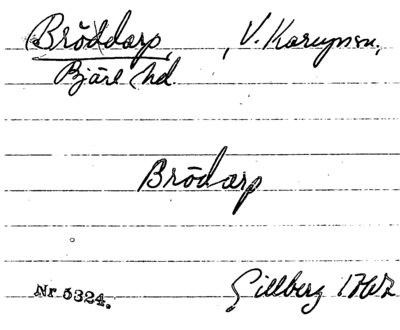 Bröddarp, , V. Karupsn.,
Bjäre hd
Brödarp
Nr 5324. Gillberg 1767